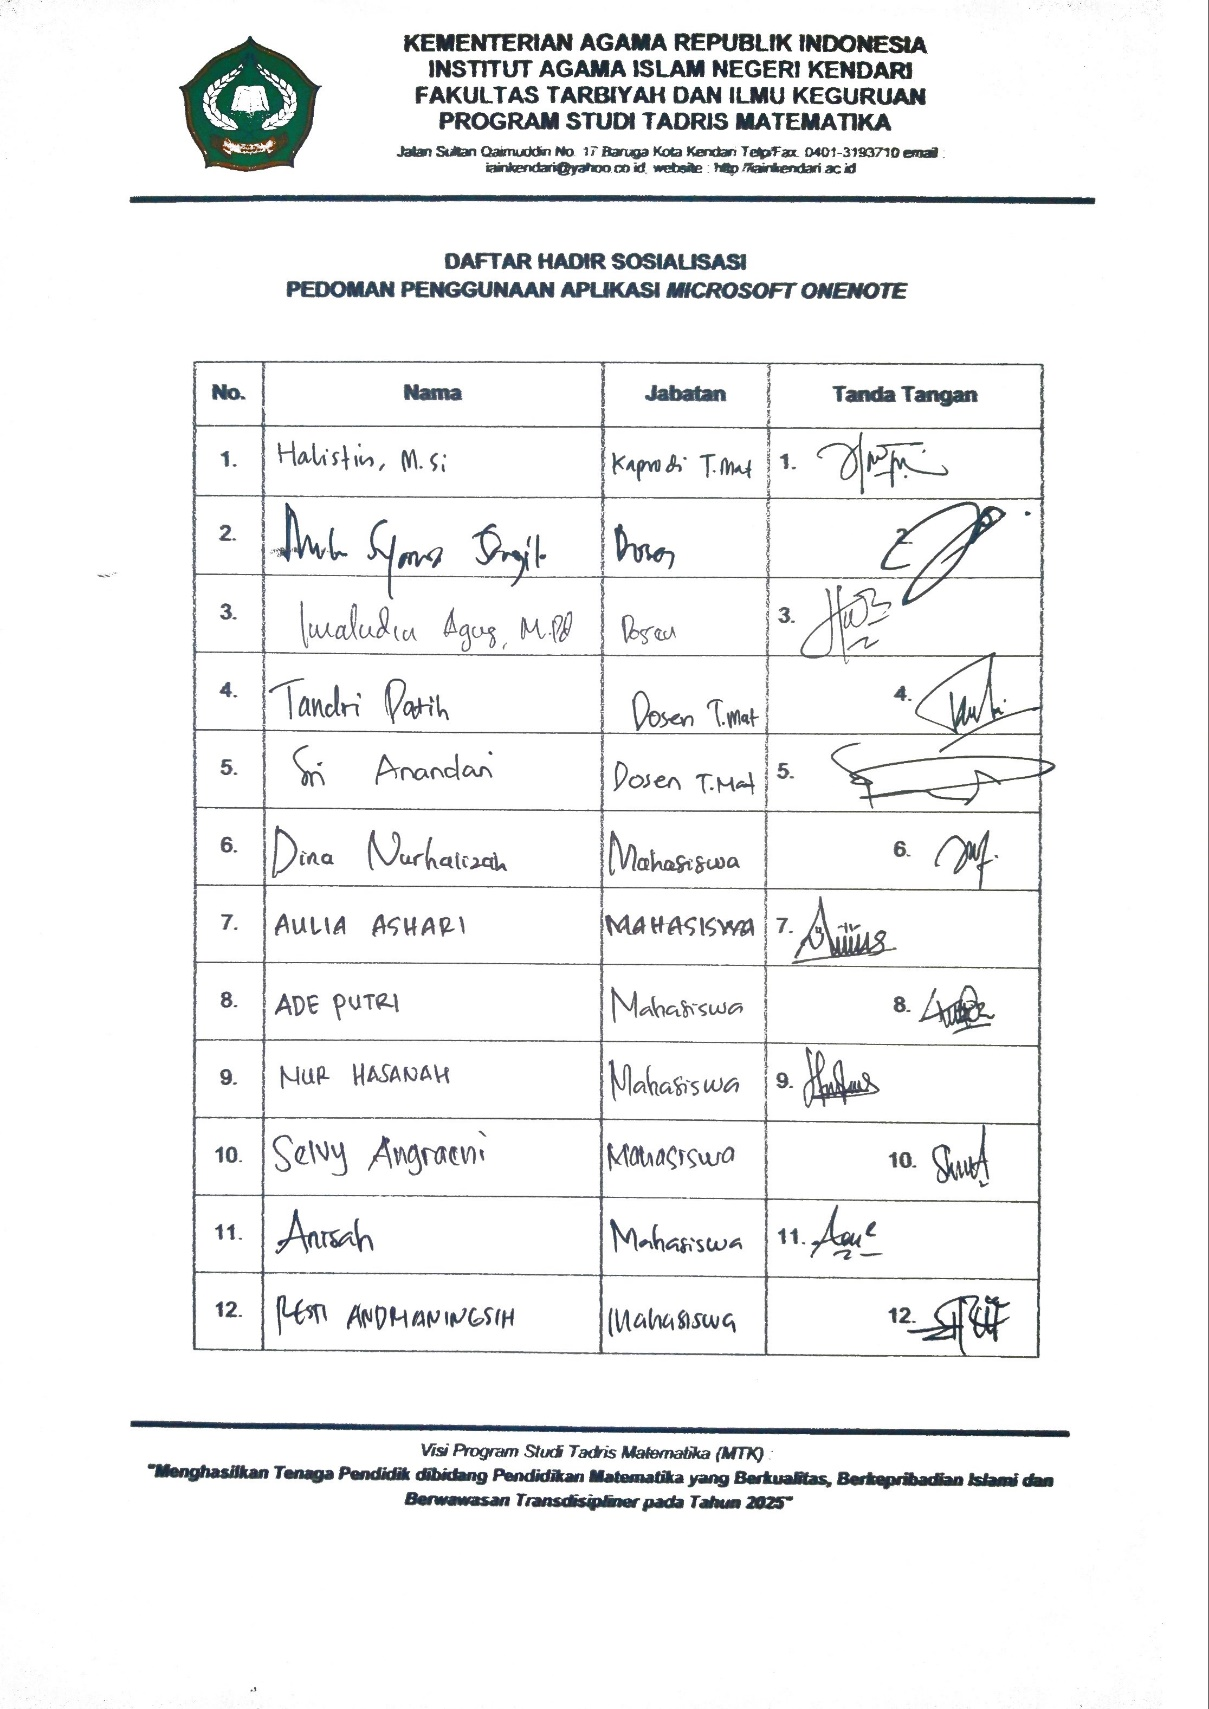 KEMENTERIAN AGAMA REPUBLIK INDONESIA
INSTITUT AGAMA ISLAM NEGERI KENDARI
FAKULTAS TARBIYAH DAN ILMU KEGURUAN
PROGRAM STUDI TADRIS MATEMATIKA
Jalan Sultan Qaimuddin No. 17 Baruga Kota Kendari Telp/Fax. 0401-3193710 email :
iainkendari@yahoo.co.id, website : http://iainkendari.ac.id
DAFTAR HADIR SOSIALISASI
PEDOMAN PENGGUNAAN APLIKASI MICROSOFT ONENOTE
No. Nama Jabatan Tanda Tangan
1. Halistin, M.Si Kaprodi T.Mat 1.
2. Dosen 2.
3. Imaludin Agus, M.Pd Dosen 3.
4. Tandri Patih Dosen T.Mat 4.
5. Sri Anandari Dosen T.Mat 5.
6. Dina Nurhalizah Mahasiswa 6.
7. AULIA ASHARI MAHASISWA 7.
8. ADE PUTRI Mahasiswa 8.
9. NUR HASANAH Mahasiswa 9.
10. Selvy Angraeni Mahasiswa 10.
11. Anisah Mahasiswa 11.
12. RESTI ANDMANINGSIH Mahasiswa 12.
Visi Program Studi Tadris Matematika (MTK) :
"Menghasilkan Tenaga Pendidik dibidang Pendidikan Matematika yang Berkualitas, Berkepribadian Islami dan
Berwawasan Transdisipliner pada Tahun 2025"